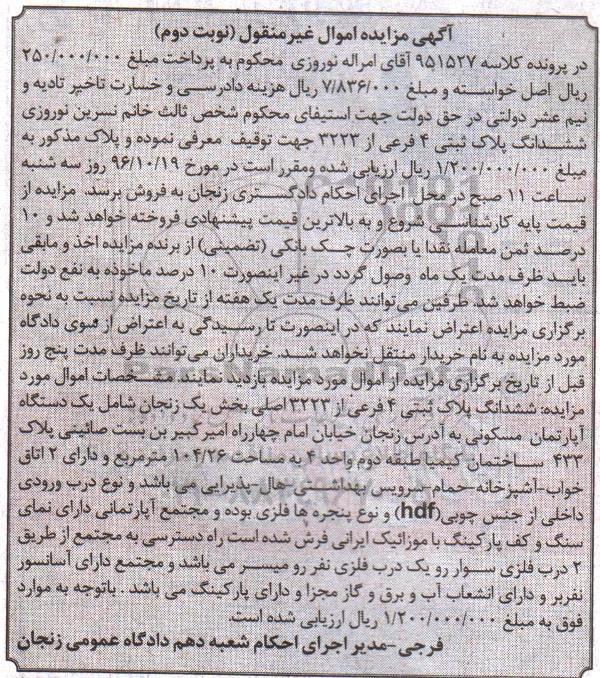 آگهی مزایده اموال غیرمنقول (نوبت دوم)
در پرونده کلاسه ۹۵۱۵۲۷ آقای امراله نوروزی محکوم به پرداخت مبلغ ۲۵۰/۰۰۰/۰۰۰
ریال اصل خواسته و مبلغ ۷/۸۳۶/۰۰۰ ریال هزینه دادرسی و خسارت تاخیر تادیه و
نیم عشر دولتی در حق دولت جهت استیفای محکوم شخص ثالث خانم نسرین نوروزی
ششدانگ پلاک ثبتی ۴ فرعی از ۳۲۲۳ جهت توقیف معرفی نموده و پلاک مذکور به
مبلغ ۱/۲۰۰/۰۰۰/۰۰۰ ریال ارزیابی شده ومقرر است در مورخ ۹۶/۱۰/۱۹ روز سه شنبه
ساعت ۱۱ صبح در محل اجرای احکام دادگستری زنجان به فروش برسد. مزایده از
قیمت پایه کارشناسی شروع و به بالاترین قیمت پیشنهادی فروخته خواهد شد و ۱۰
درصد ثمن معامله نقدا یا بصورت چک بانکی (تضمینی) از برنده مزایده اخذ و مابقی
باید ظرف مدت یک ماه وصول گردد در غیر اینصورت ۱۰ درصد ماخوذه به نفع دولت
ضبط خواهد شد. طرفین می‌توانند ظرف مدت یک هفته از تاریخ مزایده نسبت به نحوه
برگزاری مزایده اعتراض نمایند که در اینصورت تا رسیدگی به اعتراض از سوی دادگاه
مورد مزایده به نام خریدار منتقل نخواهد شد. خریداران می‌توانند ظرف مدت پنج روز
قبل از تاریخ برگزاری مزایده از اموال مورد مزایده بازدید نمایند. مشخصات اموال مورد
مزایده: ششدانگ پلاک ثبتی ۴ فرعی از ۳۲۲۳ اصلی بخش یک زنجان شامل یک دستگاه
آپارتمان مسکونی به آدرس زنجان خیابان امام چهارراه امیرکبیر بن بست صائینی پلاک
۴۳۳ ساختمان کیمیا طبقه دوم واحد ۴ به مساحت ۱۰۴/۲۶ مترمربع و دارای ۲ اتاق
خواب-آشپزخانه-حمام-سرویس بهداشتی-هال-پذیرایی می باشد و نوع درب ورودی
داخلی از جنس چوبی(hdf) و نوع پنجره ها فلزی بوده و مجتمع آپارتمانی دارای نمای
سنگ و کف پارکینگ با موزائیک ایرانی فرش شده است راه دسترسی به مجتمع از طریق
۲ درب فلزی سوار رو یک درب فلزی نفر رو میسر می باشد و مجتمع دارای آسانسور
نفربر و دارای انشعاب آب و برق و گاز مجزا و دارای پارکینگ می باشد . باتوجه به موارد
فوق به مبلغ ۱/۲۰۰/۰۰۰/۰۰۰ ریال ارزیابی شده است.
فرجی-مدیر اجرای احکام شعبه دهم دادگاه عمومی زنجان